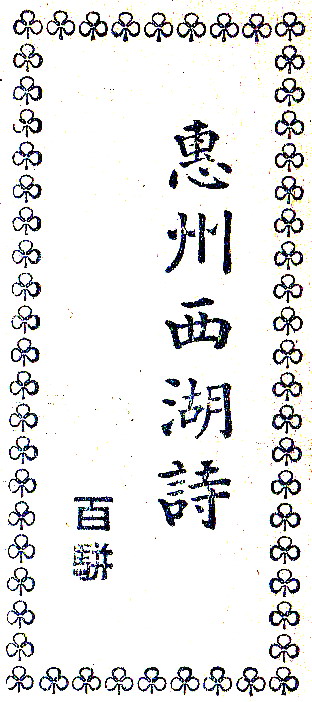 惠州西湖詩
百駢